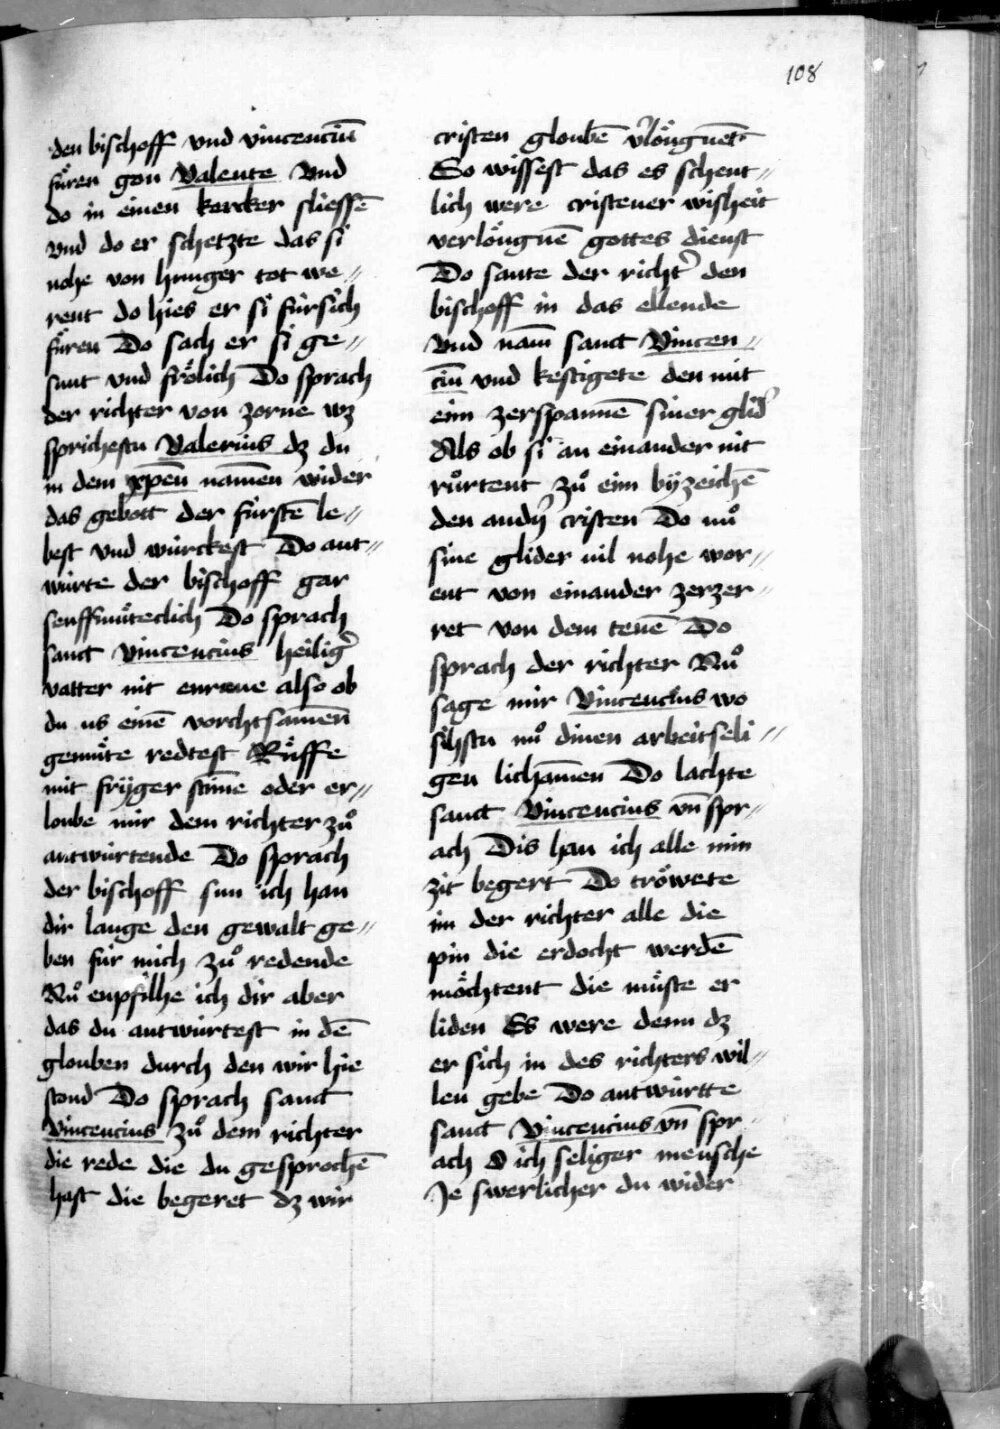 108
den bischoff vnd vincenciū
fuͤren gon Valente Vnd
do in einen kercker sliessē
vnd do er schetzte das si
nohe von hunger tot we⸗
rent do hies er si fúrsich
fuͤren Do sach er si ge⸗
sunt vnd froͤlich Do sprach
der richter von zorne wz
sprichestu Valerius dz du
in dem xp̄en namēn wider
das gebott der fúrstē le⸗
best vnd wúrckest Do ant⸗
wúrte der bischoff gar
senffmuͤteclich Do sprach
sanct vincencius heiligͬ
vatter nit enrune also ob
du us einē vorchtsamēn
gemuͤte redtest Ruͤffe
mit fryger stim̄e oder er⸗
loube mir dem richter zuͦ
antwúrtende Do sprach
der bischoff sun ich han
dir lange den gewalt ge⸗
ben fúr mich zuͦ redende
Nuͦ enpfilhe ich dir aber
das du antwúrtest in dē
glouben durch den wir hie
stond Do sprach sanct
Vincencius zuͦ dem richter
die rede die du gesprochē
hast die begeret dz wir
cristen gloubē v̾loͤugnēt
So wissest das es schent⸗
lich were cristener wisheit
verloͤugnē gottes dienst
Do sante der richt̾ den
bischoff in das ellende
Vnd nam̄ sanct Vincen⸗
ciū vnd kestigete den mit
eim zerspannē siner glid̾
Als ob si an einander nit
ruͦrtent zuͦ eim byzeichē
den andn̾ cristen Do nuͦ
sine glider vil nohe wor⸗
ent von einander zerzer⸗
ret von dem tenē Do
sprach der richter Nuͦ
sage mir Vincencius wo
sihstu nuͦ dinen arbeitseli⸗
gen licham̄en Do lachte
sanct Vincencius vn̄ spr⸗
ach Dis han ich alle min
zit begert Do troͤwete
im der richter alle die
pin die erdocht werdē
moͤchtent die muͤste er
liden Es were denn dz
er sich in des richters wil⸗
len gebe Do antwúrtte
sanct Vincencius vn̄ spr⸗
ach O ich seliger mensche
Je swerlicher du wider